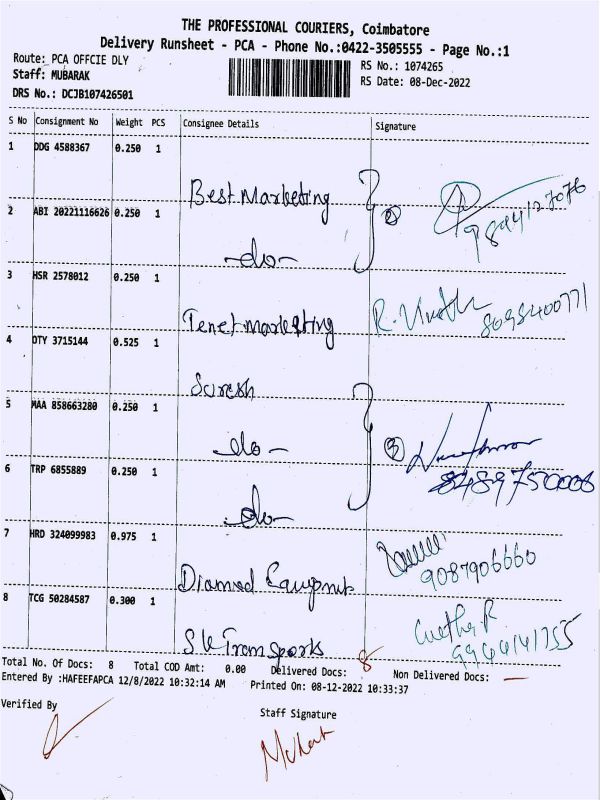 THE PROFESSIONAL COURIERS, Coimbatore
Delivery Runsheet - PCA - Phone No.:0422-3505555 - Page No.:1
Route: PCA OFFCIE DLY
RS No.: 1074265
Staff: MUBARAK
RS Date: 08-Dec-2022
DRS No.: DCJB107426501
S No Consignment No Weight PCS Consignee Details Signature
1 DDG 4588367 0.250 1
Best Marketing
2 ABI 20221116626 0.250 1
②
9894127076
-do-
3 HSR 2578012 0.250 1
Tenet marketing
8098400771
4 DTY 3715144 0.525 1
Suresh
5 MAA 858663280 0.250 1
-do-
③
6 TRP 6855889 0.250 1
8489750006
-do-
7 HRD 324099983 0.975 1
9087906660
Diamond
8 TCG 50284587 0.300 1
S K Transports
9966141755
Total No. Of Docs: 8 Total COD Amt: 0.00 Delivered Docs: 8 Non Delivered Docs: —
Entered By :HAFEEFAPCA 12/8/2022 10:32:14 AM Printed On: 08-12-2022 10:33:37
Verified By
Staff Signature